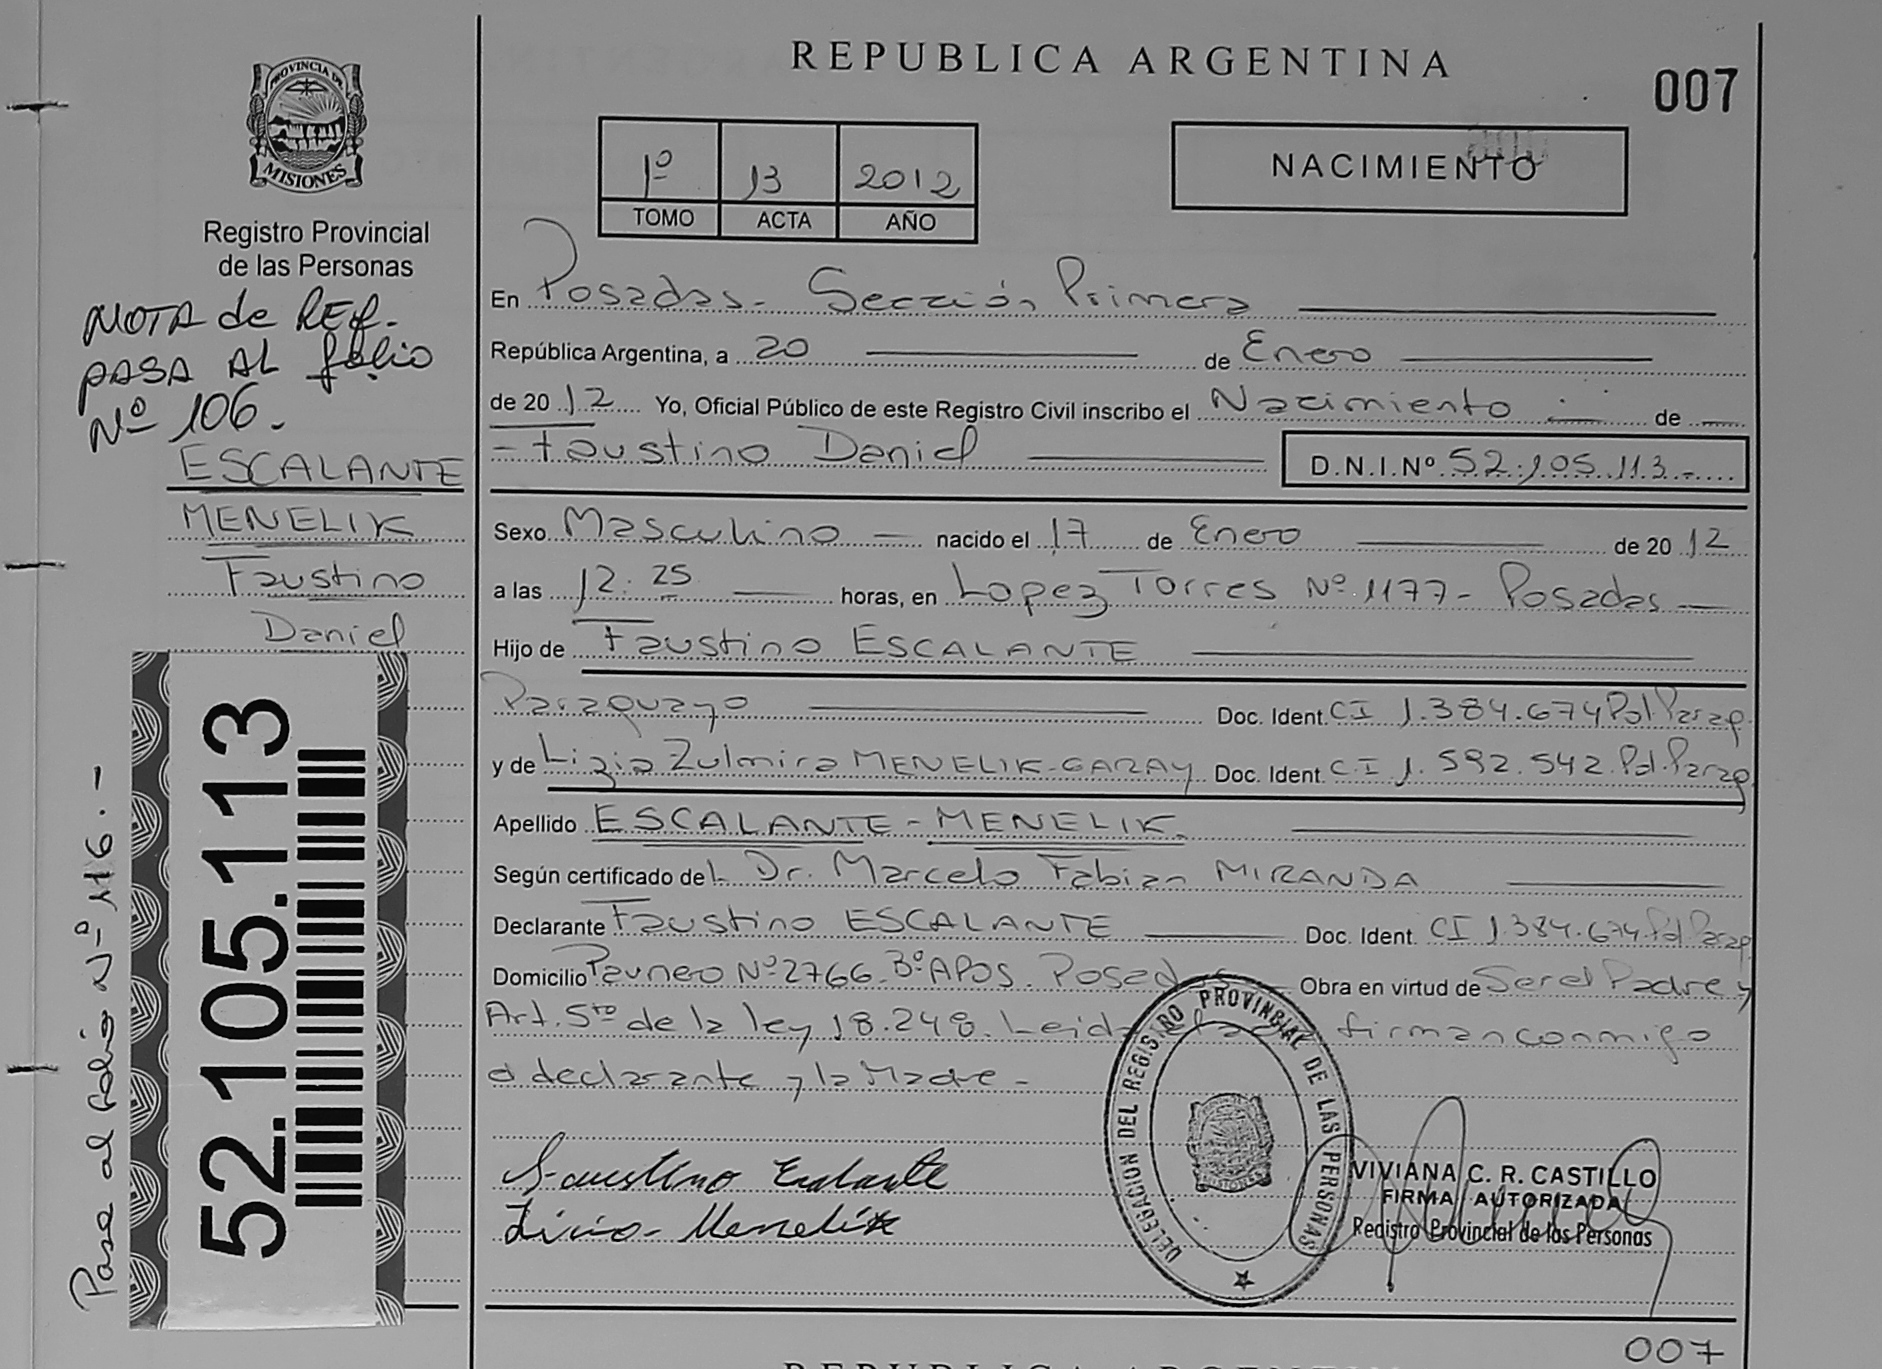 REPUBLICA ARGENTINA
007
PROVINCIA DE
MISIONES
Registro Provincial
de las Personas
1º 13 2012
TOMO ACTA AÑO
NACIMIENTO
NOTA de REF.
PASA AL folio
Nº 106.
ESCALANTE
MENELIK
Faustino
Daniel
52.105.113
Pasa al folio Nº 116.-
En Posadas- Sección Primera
República Argentina, a 20 de Enero
de 2012 Yo, Oficial Público de este Registro Civil inscribo el Nacimiento de
- Faustino Daniel D.N.I.Nº 52.105.113.-
Sexo Masculino nacido el 17 de Enero de 2012
a las 12:25 horas, en Lopez Torres Nº 1177- Posadas
Hijo de Faustino ESCALANTE
Paraguayo Doc. Ident. CI 1.384.674 Pol. Parag.
y de Ligia Zulmira MENELIK-GARAY Doc. Ident. C.I 1.592.542.Pol.Parag
Apellido ESCALANTE-MENELIK.
Según certificado del Dr. Marcelo Fabian MIRANDA
Declarante Faustino ESCALANTE Doc. Ident. CI 1.384.674.Pol Parag.
Domicilio Nº 2766. Bº APOS. Posadas Obra en virtud de Ser el Padre y
Art. 5to de la ley 18.248. Leida firman conmigo
el declarante y la Madre -
Faustino Escalante
Menelik
DELEGACION DEL REGISTRO PROVINCIAL DE LAS PERSONAS
MISIONES
VIVIANA C. R. CASTILLO
FIRMA AUTORIZADA
Registro Provincial de las Personas
007
REPUBLICA ARGENTIN